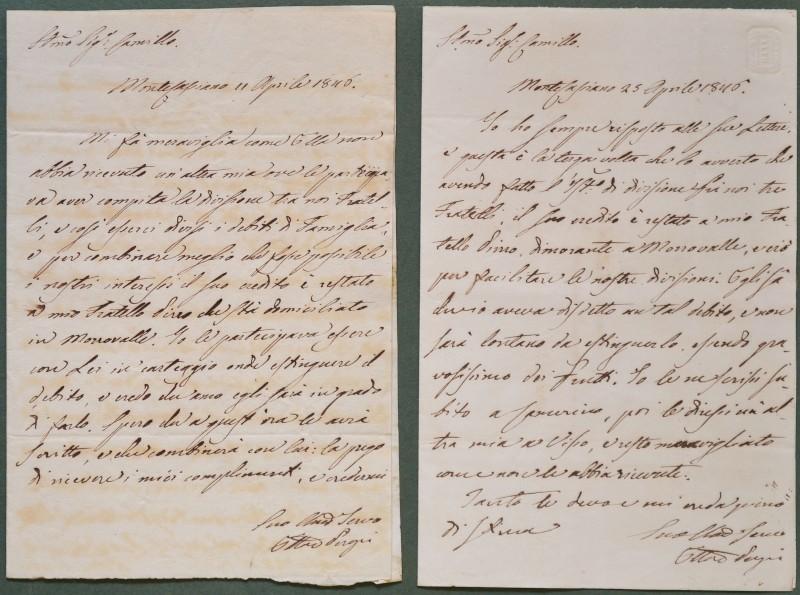 Stmo Sigr Camillo.
Montefassiano 11 Aprile 1846.
Mi fà meraviglia come Ella non
abbia ricevuto un'altra mia ove le partecipa-
va aver compita la divisione tra noi Fratel-
li, e così esserci divisi i debiti di Famiglia,
e per combinare meglio che fosse possibile
i nostri interessi il suo credito è restato
a mio Fratello Pirro che stà domiciliato
in Morrovalle. Io le partecipava essere
con Lei in carteggio onde estinguere il
debito, e credo che anco egli sarà in grado
di farlo. Spero che a quest'ora le avrà
scritto, e che combinerà con lui: la prego
di ricevere i miei complimenti, e credermi
Suo Servo
Stmo Sigr Camillo.
Montefassiano 25 Aprile 1846.
Io ho sempre risposto alle sue Lettere,
e questa è la terza volta che lo avverto che
avendo fatto l' di divisione fra noi tre
Fratelli, il suo credito è restato a mio Fra-
tello Pirro, dimorante a Morrovalle, e ciò
per facilitare le nostre divisioni. Egli sà
che io aveva disdetto un tal debito, e non
sarà lontano da estinguerlo, essendo gra-
vosissimo dei frutti. Io le ne scrissi su-
bito a poi le diressi un'al-
tra mia a Visso, e resto meravigliato
come non le abbia ricevute.
Tanto le devo e mi creda pieno
di stima
Suo Servo